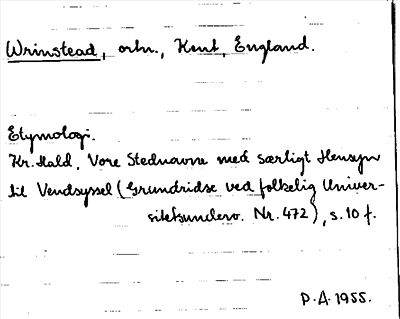 Wrinstead, ortn., Kent, England.
Etymologi.
Kr. Hald, Vore Stednavne med særligt Hensyn
til Vendsyssel (Grundridse ved folkelig Univer-
sitetsunderv. Nr. 472), s. 10 f.
P.A. 1955.